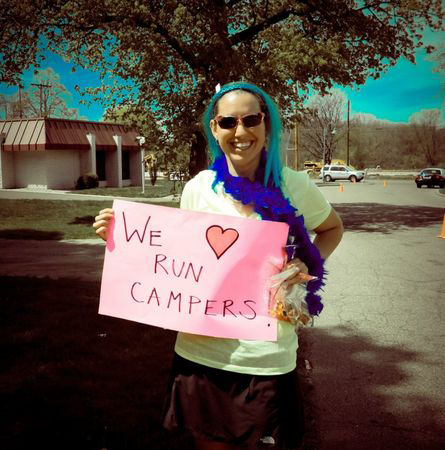 WE ♥
RUN
CAMPERS!